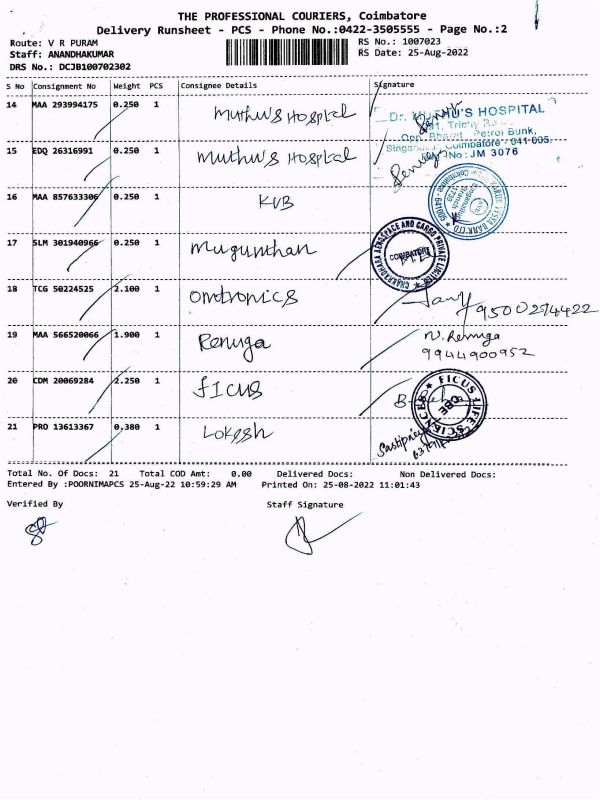 THE PROFESSIONAL COURIERS, Coimbatore
Delivery Runsheet - PCS - Phone No.:0422-3505555 - Page No.:2
Route: V R PURAM
RS No.: 1007023
Staff: ANANDHAKUMAR
RS Date: 25-Aug-2022
DRS No.: DCJB100702302
S No Consignment No Weight PCS Consignee Details Signature
14 MAA 293994175 0.250 1 Muthu's Hospital
Dr. MUTHU'S HOSPITAL
Petrol Bunk,
Coimbatore - 641 005.
No: JM 3076
15 EDQ 26316991 0.250 1 Muthu's Hospital
16 MAA 857633306 0.250 1 KVB
17 SLM 301940966 0.250 1 Mugunthan
CHAKRADHARA AEROSPACE AND CARGO PRIVATE LIMITED
COIMBATORE
18 TCG 50224525 2.100 1 Omtronics
9500274422
19 MAA 566520066 1.900 1 Renuga N. Renuga
9944900952
20 CDM 20069284 2.250 1 FICUS
FICUS LIFE SCIENCES
21 PRO 13613367 0.380 1 Lokesh
Total No. Of Docs: 21 Total COD Amt: 0.00 Delivered Docs: Non Delivered Docs:
Entered By :POORNIMAPCS 25-Aug-22 10:59:29 AM Printed On: 25-08-2022 11:01:43
Verified By
Staff Signature